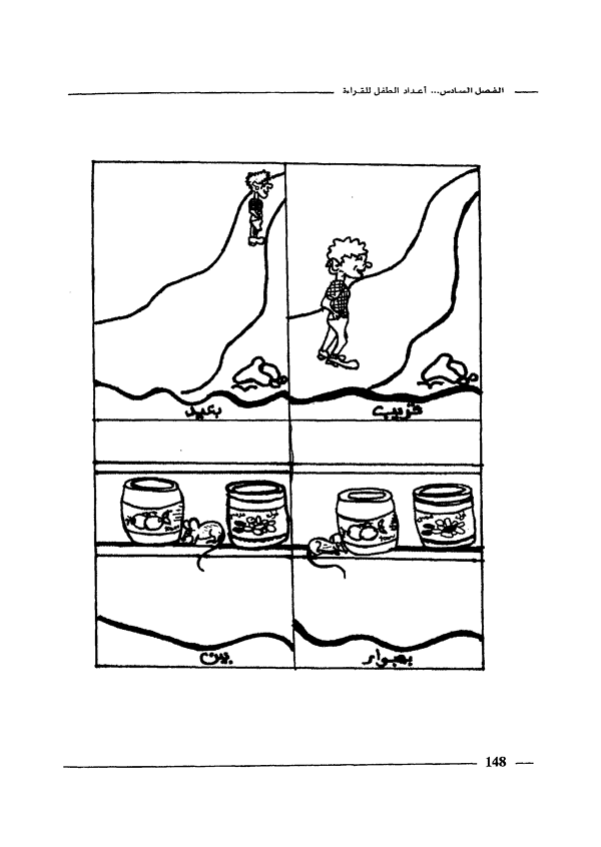 الفصل السادس... أعداد الطفل للقراءة
قريب
بعيد
بجوار
بين
148